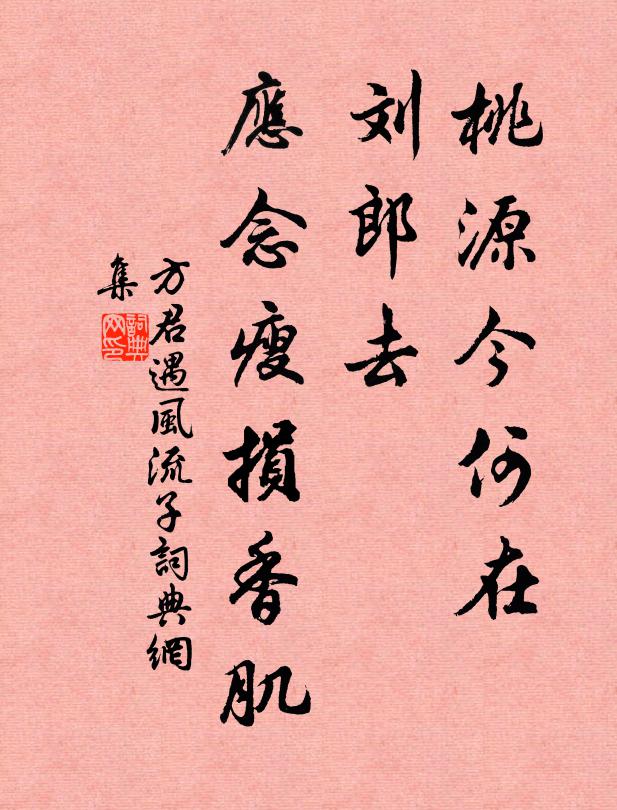 桃源今何在
刘郎去
應念瘦損香肌
方君遇風流子詞典網
集
詞典
网印